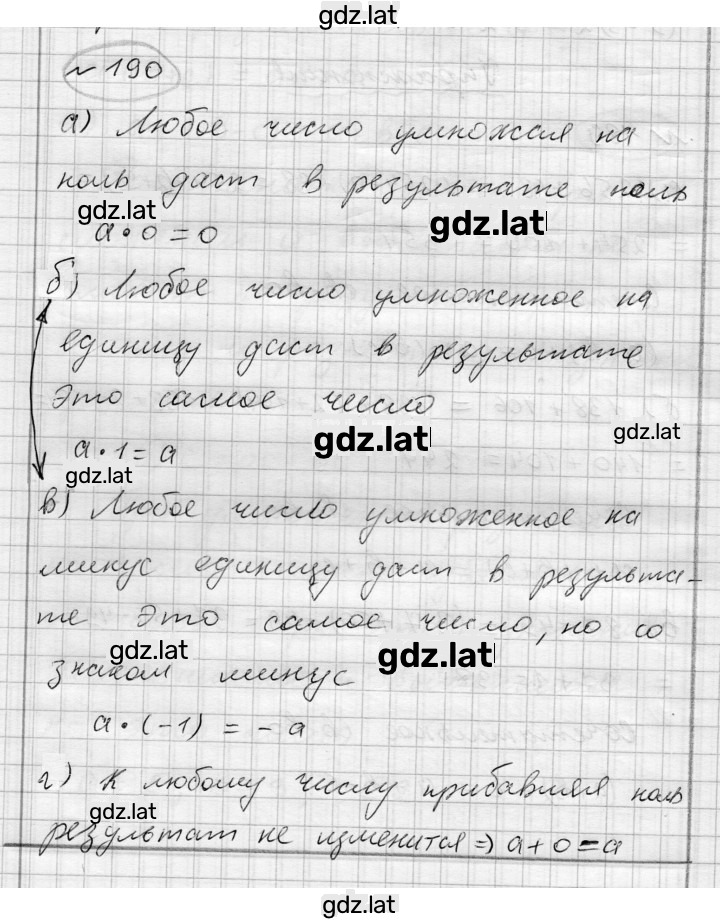 gdz.lat
№ 190
а) Любое число умножая на
ноль даст в результате ноль
gdz.lat
gdz.lat
a · 0 = 0
б) Любое число умноженное на
единицу даст в результате
это самое число
gdz.lat
gdz.lat
a · 1 = a
gdz.lat
в) Любое число умноженное на
минус единицу даст в результа-
те это самое число, но со
gdz.lat
gdz.lat
знаком минус
a · (-1) = - a
г) К любому числу прибавляя ноль
gdz.lat
результат не изменится => a + 0 = a
gdz.lat